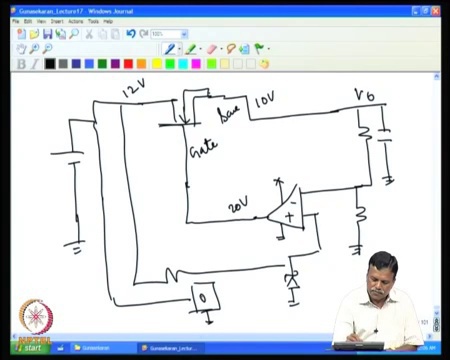 Gunasekaran_Lecture17 - Windows Journal
File Edit View Insert Actions Tools Help
100%
B I
12V
10V
V0
Gate
20V
0
start
Gunasekaran
Gunasekaran_Lectur...